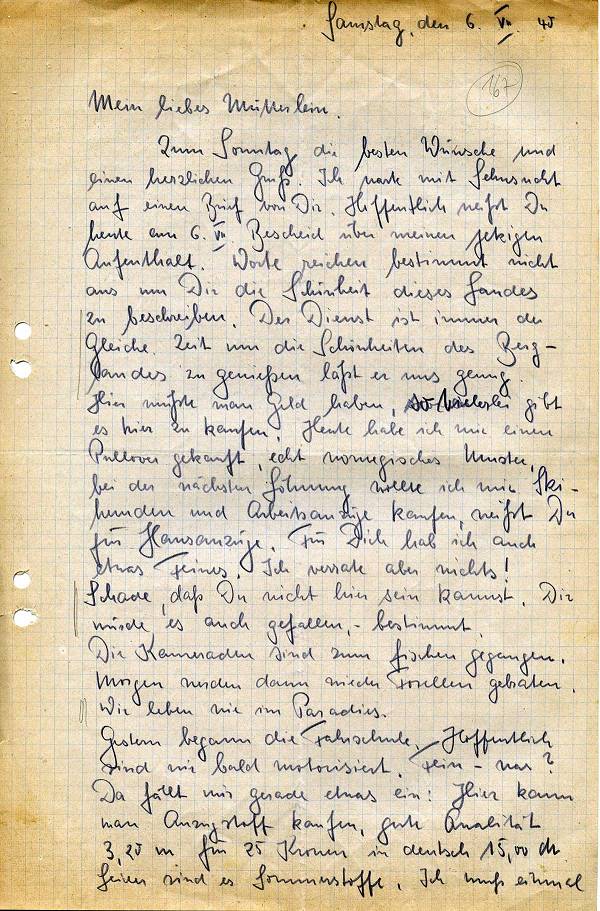 Samstag, den 6. VII. 40
167
Mein liebes Mütterlein.
Zum Sonntag die besten Wünsche und
einen herzlichen Gruß. Ich wart mit Sehnsucht
auf einen Brief von Dir. Hoffentlich weißt Du
heute am 6. VII. Bescheid über meinen jetzigen
Aufenthalt. Worte reichen bestimmt nicht
aus um Dir die Schönheit dieses Landes
zu beschreiben. Der Dienst ist immer der
Gleiche. Zeit um die Schönheiten des Berg-
landes zu genießen läßt er uns genug.
Hier müßte man Geld haben, gibt
es hier zu kaufen. Heute habe ich mir einen
Pullover gekauft, echt norwegisches Muster,
bei der nächsten Löhnung wollte ich mir Ski-
hemden und Arbeitsanzüge kaufen, weißt Du
für Hausanzüge. Für Dich hab ich auch
etwas Feines. Ich verrate aber nichts!
Schade, daß Du nicht hier sein kannst. Dir
würde es auch gefallen, - bestimmt.
Die Kameraden sind zum fischen gegangen.
Morgen werden dann wieder Forellen gebraten.
Wir leben wie im Paradies.
Gestern begann die Fahrschule. Hoffentlich
sind wir bald motorisiert. Fein - was?
Da fällt mir gerade etwas ein: Hier kann
man Anzugstoff kaufen, gute Qualität
3,20 m für 25 Kronen in deutsch 15,00 dM
Leider sind es Sommerstoffe. Ich muß einmal